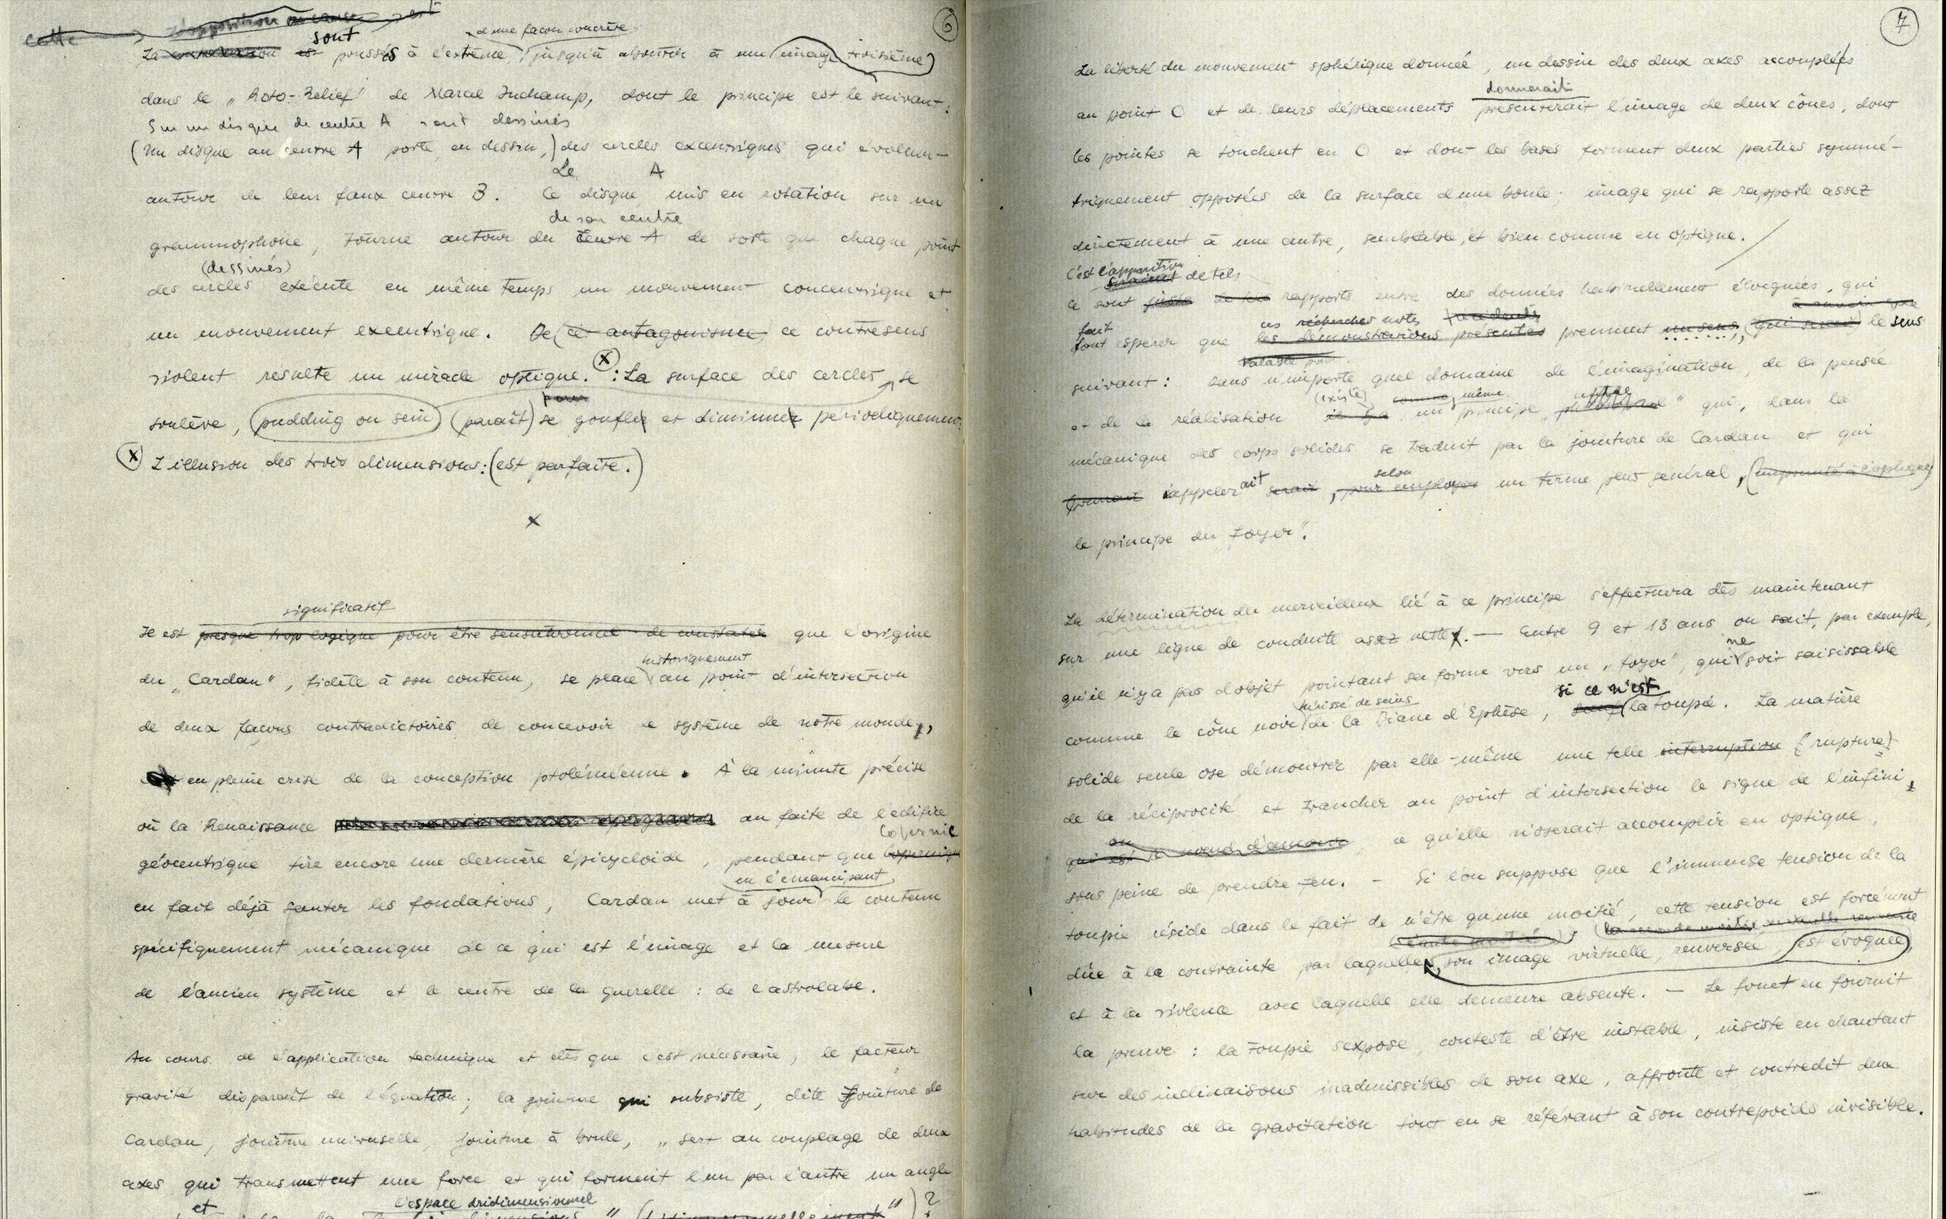 6
cette
sont
d'une façon concrète
La poussés à l'extrême, jusqu'à aboutir à une (image troisième)
dans le „Roto-Relief" de Marcel Duchamp, dont le principe est le suivant:
Sur un disque de centre A sont dessinés
(Un disque au centre A porte, en dessin,) des cercles excentriques qui évoluent
Le A
autour de leur faux centre B. Ce disque mis en rotation sur un
de son centre
grammophone, tourne autour du centre A de sorte que chaque point
(dessinés)
des cercles exécute en même temps un mouvement concentrique et
un mouvement excentrique. De (ce antagonisme) ce contresens
violent résulte un miracle optique. (x) : La surface des cercles, se
pour
soulève, (pudding ou sein) (paraît) se gonfler et diminuer périodiquement.
(x) L'illusion des trois dimensions: (est parfaite.)
x
significatif
Il est presque trop logique pour être sensationnel de constater que l'origine
historiquement
du „Cardan", fidèle à son contenu, se place au point d'intersection
de deux façons contradictoires de concevoir le système de notre monde,
en pleine crise de la conception ptoléméenne. À la minute précise
où la Renaissance au faîte de l'édifice
Copernic
géocentrique tire encore une dernière épicycloïde, pendant que Copernic
en l'émancipant
en fait déjà sauter les fondations, Cardan met à jour le contenu
spécifiquement mécanique de ce qui est l'image et la mesure
de l'ancien système et le centre de la querelle: de l'astrolabe.
Au cours de l'application technique et dès que c'est nécessaire, le facteur
gravité disparaît de l'équation; la jointure qui subsiste, dite Jointure de
Cardan, jointure universelle, jointure à boule, „sert au couplage de deux
axes qui transmettent une force et qui forment l'un par l'autre un angle
et l'espace tridimensionnel
" ) ?
7
La liberté du mouvement sphérique donnée, un dessin des deux axes accouplés
donnerait
au point O et de leurs déplacements présenterait l'image de deux cônes, dont
les pointes se touchent en O et dont les bases forment deux parties symmé-
triquement opposées de la surface d'une boule; image qui se rapporte assez
directement à une autre, semblable, et bien connue en optique.
C'est l'apparition
de tels
ce sont rapports entre des données habituellement éloignées, qui
fait ces recherches notes
font espérer que les démonstrations présentes prennent un sens, (qui serait) le sens
valable pour
suivant: dans n'importe quel domaine de l'imagination, de la pensée
(existe) même
et de la réalisation il y a un principe, " qui, dans la
mécanique des corps solides se traduit par la jointure de Cardan et qui
selon
pourrait s'appelerait serait, pour employer un terme plus général, (emprunté à l'optique)
le principe du Foyer".
La détermination du merveilleux lié à ce principe s'effectuera dès maintenant
sur une ligne de conduite assez nette. — Entre 9 et 13 ans on sait, par exemple,
ne
qu'il n'y a pas d'objet pointant sa forme vers un „foyer", qui soit saisissable
hérissé de seins si ce n'est
comme le cône noir de la Diane d'Ephèse, sauf la toupie. La matière
solide seule ose démontrer par elle-même une telle interruption (rupture)
de la réciprocité et trancher au point d'intersection le signe de l'infini,
ou
qui est le nœud d'amour, ce qu'elle n'oserait accomplir en optique,
sous peine de prendre feu. — Si l'on suppose que l'immense tension de la
toupie réside dans le fait de n'être qu'une moitié, cette tension est forcément
dûe à la contrainte par laquelle, son image virtuelle, renversée, est évoquée,
et à la violence avec laquelle elle demeure absente. — Le fouet en fournit
la preuve: la toupie s'expose, conteste d'être instable, insiste en chantant
sur des inclinaisons inadmissibles de son axe, affronte et contredit deux
habitudes de la gravitation tout en se référant à son contrepoids invisible.